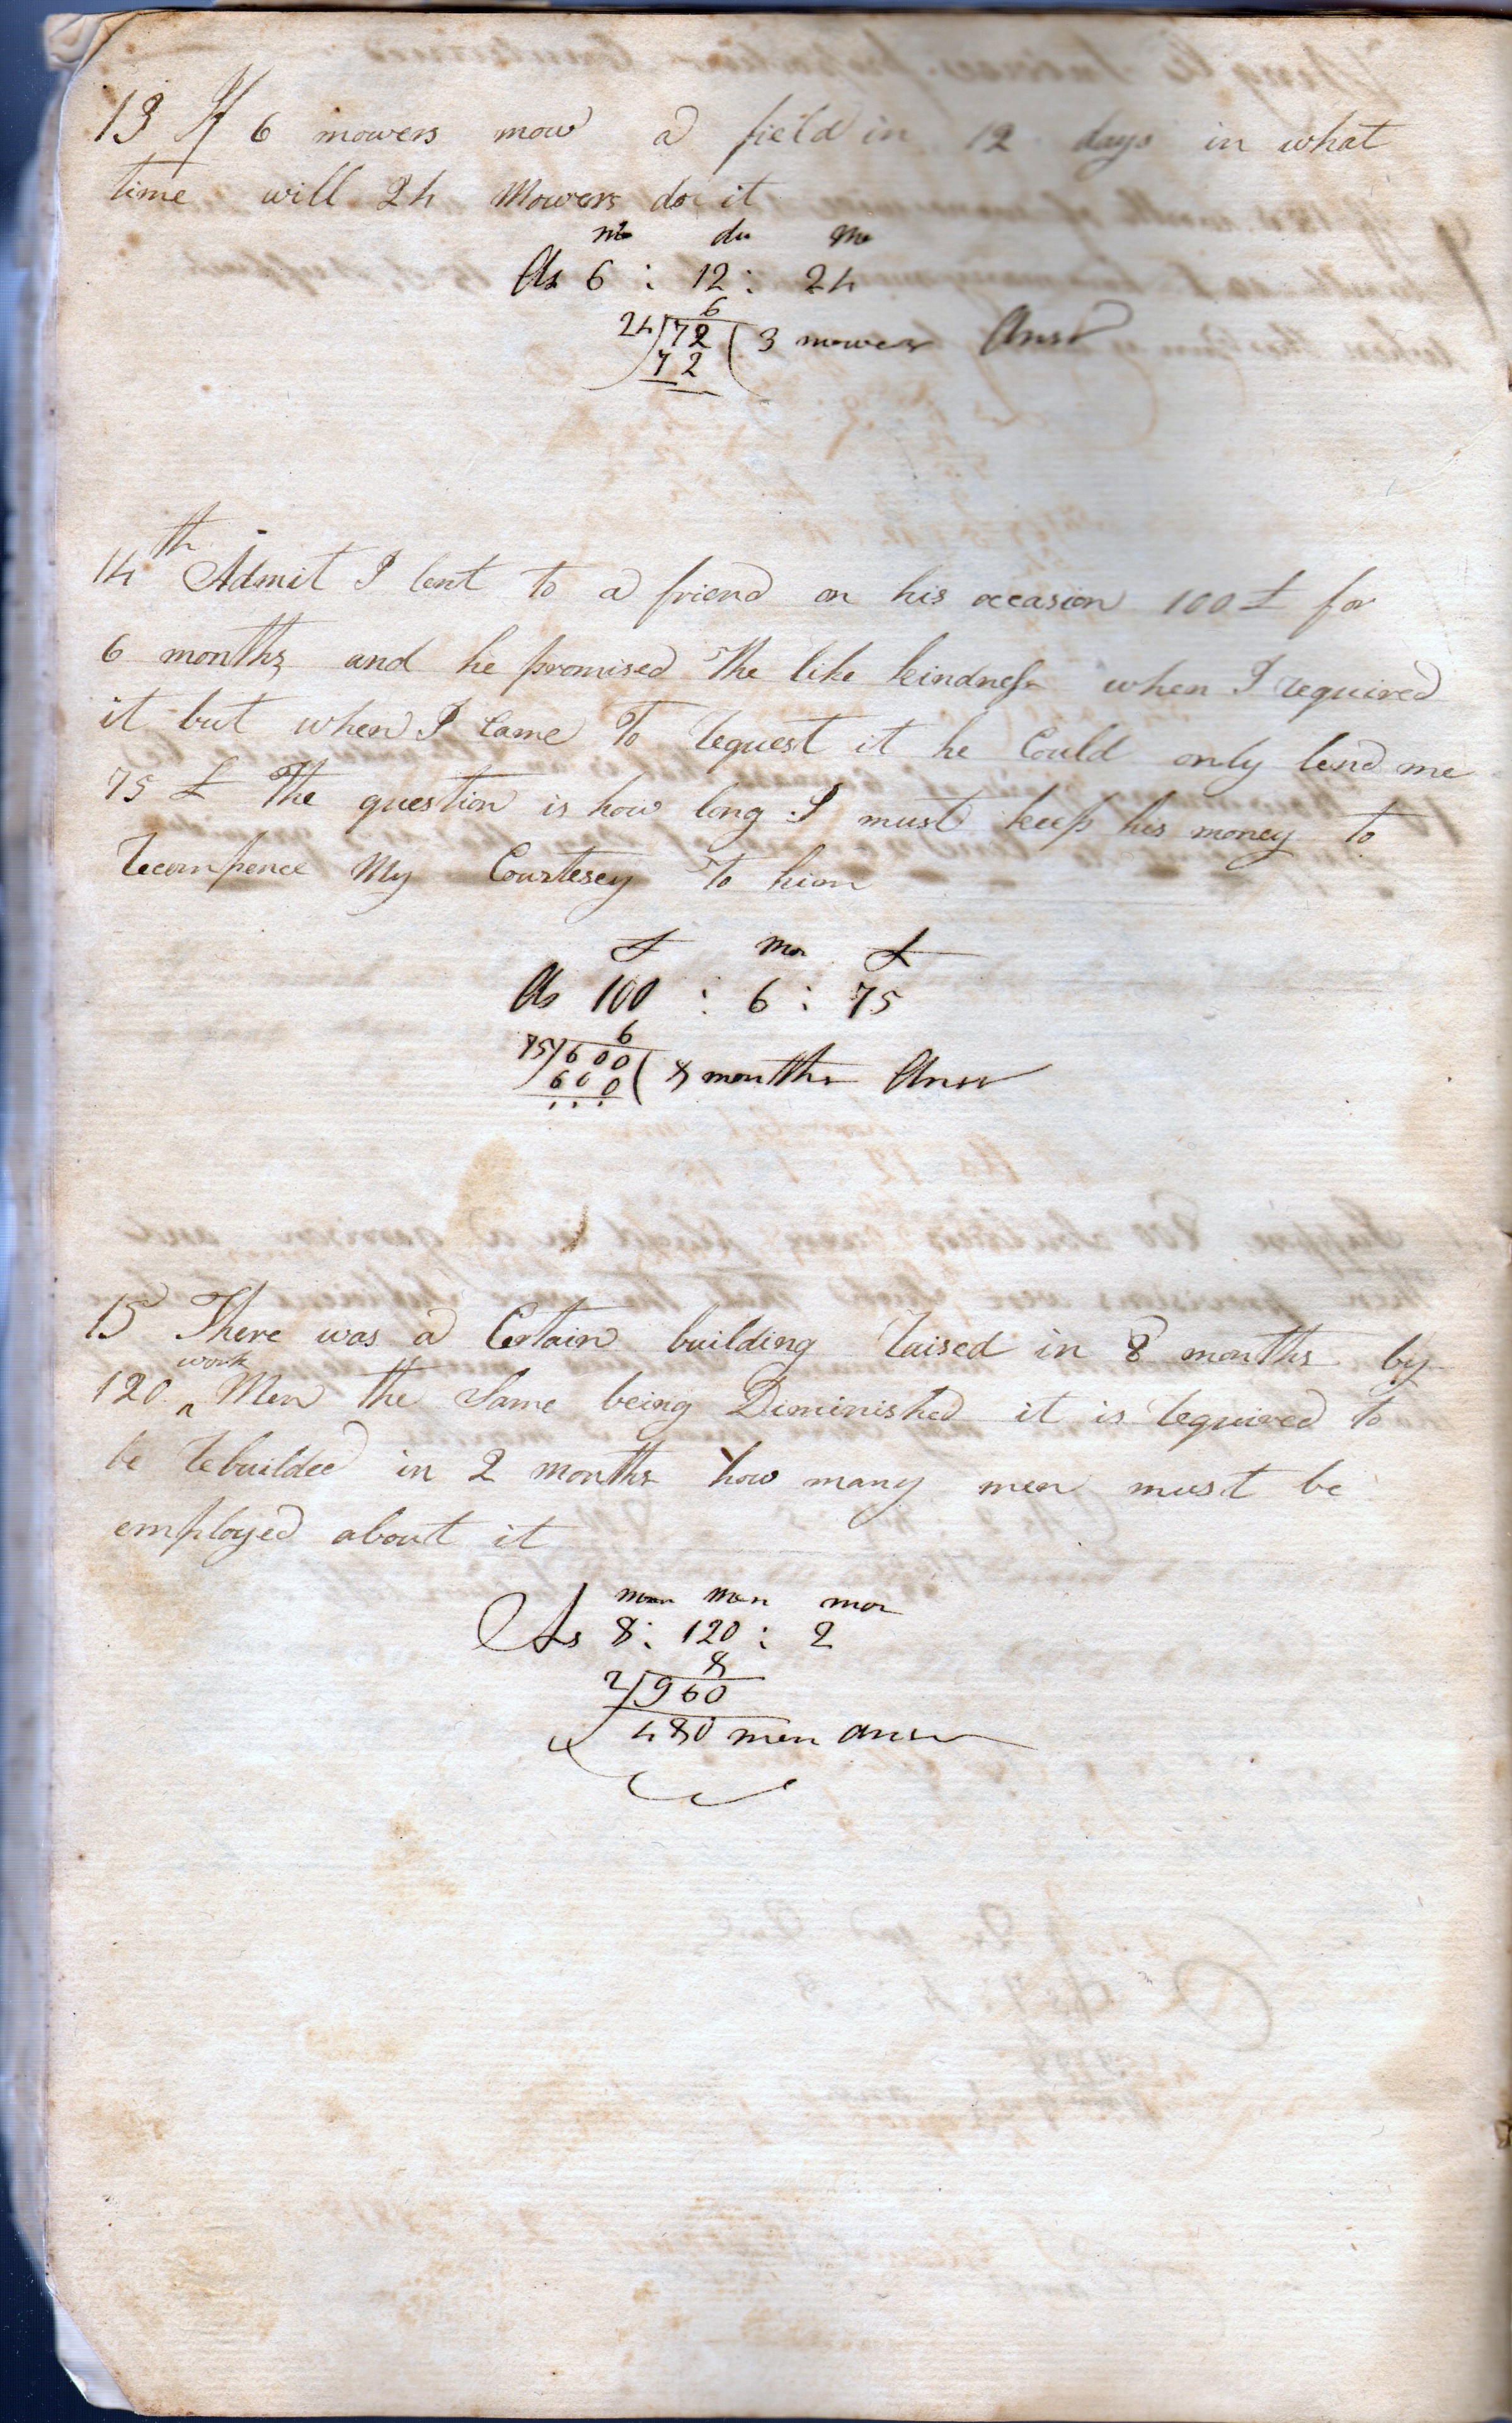 13 If 6 mowers mow a field in 12 days in what
time will 24 Mowers do it
mo da mo
As 6 : 12 : 24
6
24) 72 ( 3 mowers Answ
72
14th Admit I lent to a friend on his occasion 100 £ for
6 months and he promised the like kindness when I required
it but when I Came To request it he Could only lend me
75 £ The question is how long I must keep his money to
recompence My Courtesey To him
£ mo £
As 100 : 6 : 75
6
75) 600 ( 8 months Answ
600
...
15 There was a Certain building raised in 8 months by
work
120 ^ Men the Same being Diminished it is required to
be rebuilded in 2 months how many men must be
employed about it
mon men mon
As 8 : 120 : 2
8
2) 960
480 men answ